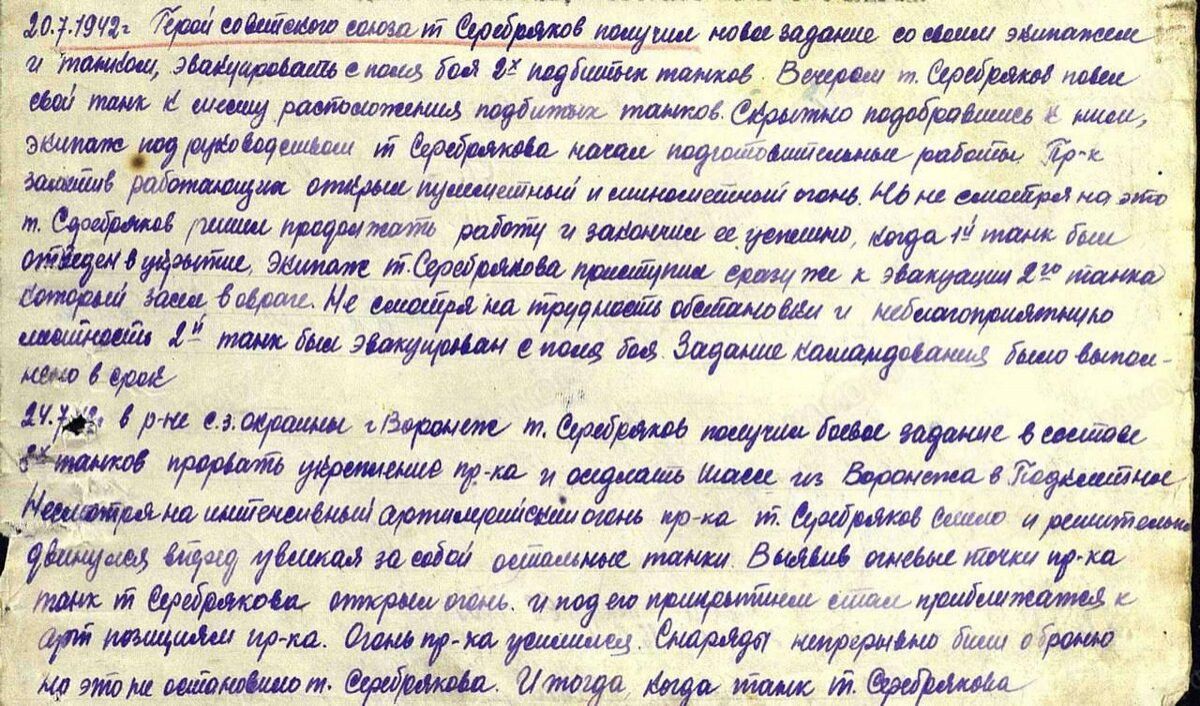 20.7.1942г Герой советского союза т Серебряков получил новое задание со своим экипажем
и танком, эвакуировать с поля боя 2х подбитых танков. Вечером т. Серебряков повел
свой танк к месту расположения подбитых танков. Скрытно подобравшись к ним,
экипаж под руководством т Серебрякова начал подготовительные работы. Пр-к
заметив работающих открыл пулеметный и минометный огонь. Но не смотря на это
т. Серебряков решил продолжать работу и закончил ее успешно, когда 1й танк был
отведен в укрытие, экипаж т. Серебрякова приступил сразу же к эвакуации 2го танка
который засел в овраге. Не смотря на трудность обстановки и неблагоприятную
местность 2й танк был эвакуирован с поля боя. Задание командования было выпол-
нено в срок
24.7 в р-не с.з. окраины г Воронеж т. Серебряков получил боевое задание в составе
танков прорвать укрепление пр-ка и оседлать шассе из Воронежа в Подклетное
Несмотря на интенсивный артиллерийский огонь пр-ка т. Серебряков смело и решительно
двинулся вперед увлекая за собой остальные танки. Выявив огневые точки пр-ка
танк т Серебрякова открыл огонь. и под его прикрытием стал приближатся к
арт позициям пр-ка. Огонь пр-ка усилился. Снаряды непрерывно били о броню
но это не остановило т. Серебрякова. И тогда, когда танк т. Серебрякова